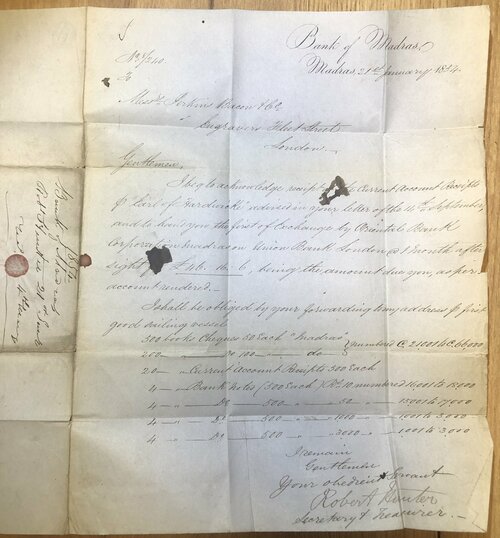 Bank of Madras
Madras, 21st January 18
No 5/240
To
Messrs Perkins Bacon & Co
Engravers Fleet Street
London
Gentlemen,
I beg to acknowledge receipt Current Account Receipts
p "Earl of Hardwicke" advised in your letter of the 4th September
and to hand you the first of Exchange by Oriental Bank
Corporation Madras on Union Bank London @ 1 month after
sight £46.16.6, being the amount due you, as per
account rendered.
I shall be obliged by your forwarding to my address p first
good sailing vessel
500 books Cheques 50 Each "Madras"
200 " Do 100 " do
numbered
20 " Current Account Receipts 500 Each
4 " Bank notes (500 Each) Rs 10 numbered 14001 to
4 " Do 500 " 50 " to 17000
4 " Do 500 " " 1001 to 3000
4 " Do 500 " " 1001 to 3000
I remain
Gentlemen
Your obedient Servant
Robert Hunter
Secretary & Treasurer
Bank of Madras
Robt Hunter 21st Janr